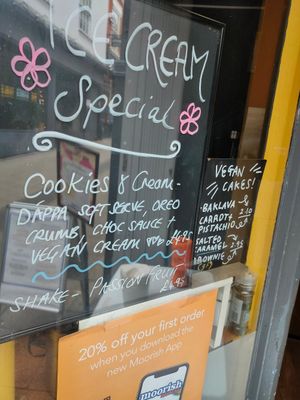 ICE CREAM
Special
Cookies & Cream -
DAPPA SOFT SERVE, OREO
CRUMB, CHOC SAUCE +
VEGAN CREAM £4.95
SHAKE - PASSION FRUIT
£6.95
VEGAN
CAKES!
- BAKLAVA -
CARROT &
PISTACHIO 2.10
- SALTED
CARAMEL 2.95
BROWNIE
20% off your first order
when you download the
new Moorish App
moorish